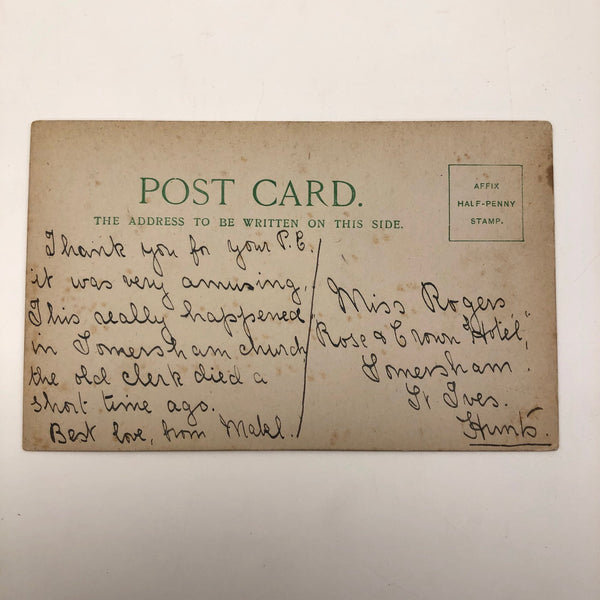 POST CARD.
THE ADDRESS TO BE WRITTEN ON THIS SIDE.
AFFIX
HALF-PENNY
STAMP.
Thank you for your P.C.
it was very amusing.
This really happened
in Somersham church
the old clerk died a
short time ago.
Best love, from Mabel.
Miss Rogers,
"Rose & Crown Hotel",
Somersham.
St Ives.
Hunts.